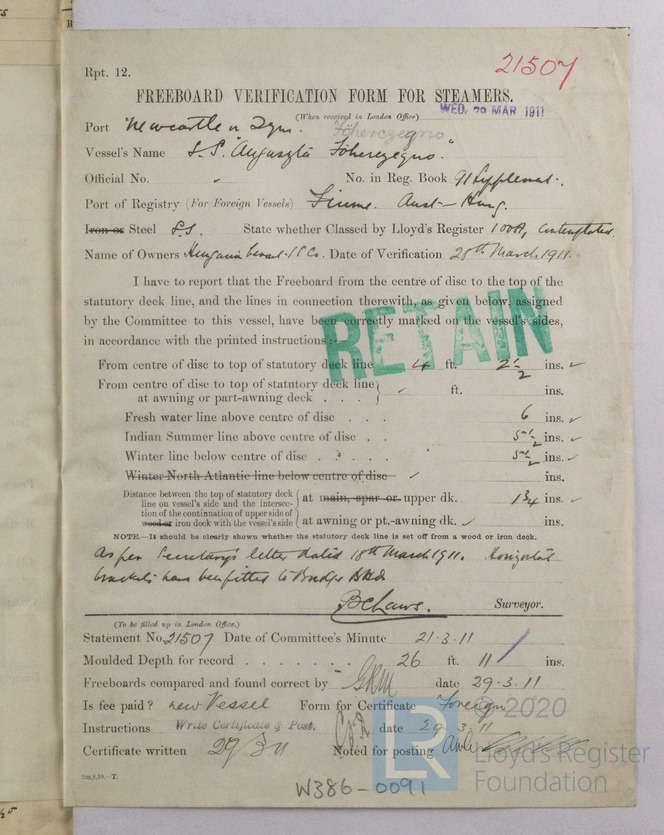 21507
Rpt. 12.
FREEBOARD VERIFICATION FORM FOR STEAMERS.
(When received in London Office)
WED. 29 MAR 1911
Port Newcastle on Tyne.
Főherczegno
Vessel's Name S.S. "Auguszta Főherczegno."
Official No. No. in Reg. Book 91 Supplement.
Port of Registry (For Foreign Vessels) Fiume. Aust-Hung.
Iron or Steel S.S. State whether Classed by Lloyd's Register 100A, contemplated
Name of Owners Date of Verification 28th March 1911.
I have to report that the Freeboard from the centre of disc to the top of the
statutory deck line, and the lines in connection therewith, as given below, assigned
by the Committee to this vessel, have been correctly marked on the vessel's sides,
in accordance with the printed instructions:
RETAIN
From centre of disc to top of statutory deck line 4 ft. 2½ ins.
From centre of disc to top of statutory deck line
at awning or part-awning deck . . . ft. ins.
Fresh water line above centre of disc . . . 6 ins.
Indian Summer line above centre of disc . . 5½ ins.
Winter line below centre of disc . . . . 5½ ins.
Winter North Atlantic line below centre of disc ins.
Distance between the top of statutory deck
line on vessel's side and the intersec-
tion of the continuation of upper side of
wood or iron deck with the vessel's side
at main, spar or upper dk. 1¾ ins.
at awning or pt.-awning dk. ins.
NOTE.—It should be clearly shown whether the statutory deck line is set off from a wood or iron deck.
As per Secretary's letter dated 18th March 1911. Horizontal
brackets have been fitted to Bridge Bkhd
B C Laws. Surveyor.
(To be filled up in London Office.)
Statement No. 21507 Date of Committee's Minute 21.3.11
Moulded Depth for record . . . . . . . 26 ft. 11 ins.
Freeboards compared and found correct by date 29.3.11
Is fee paid? new Vessel Form for Certificate Foreign
Instructions Write Certificate & Post. date 29.3.11
Certificate written 29/3/11 Noted for posting
W386-0091
© 2020
LR
Lloyd's Register
Foundation